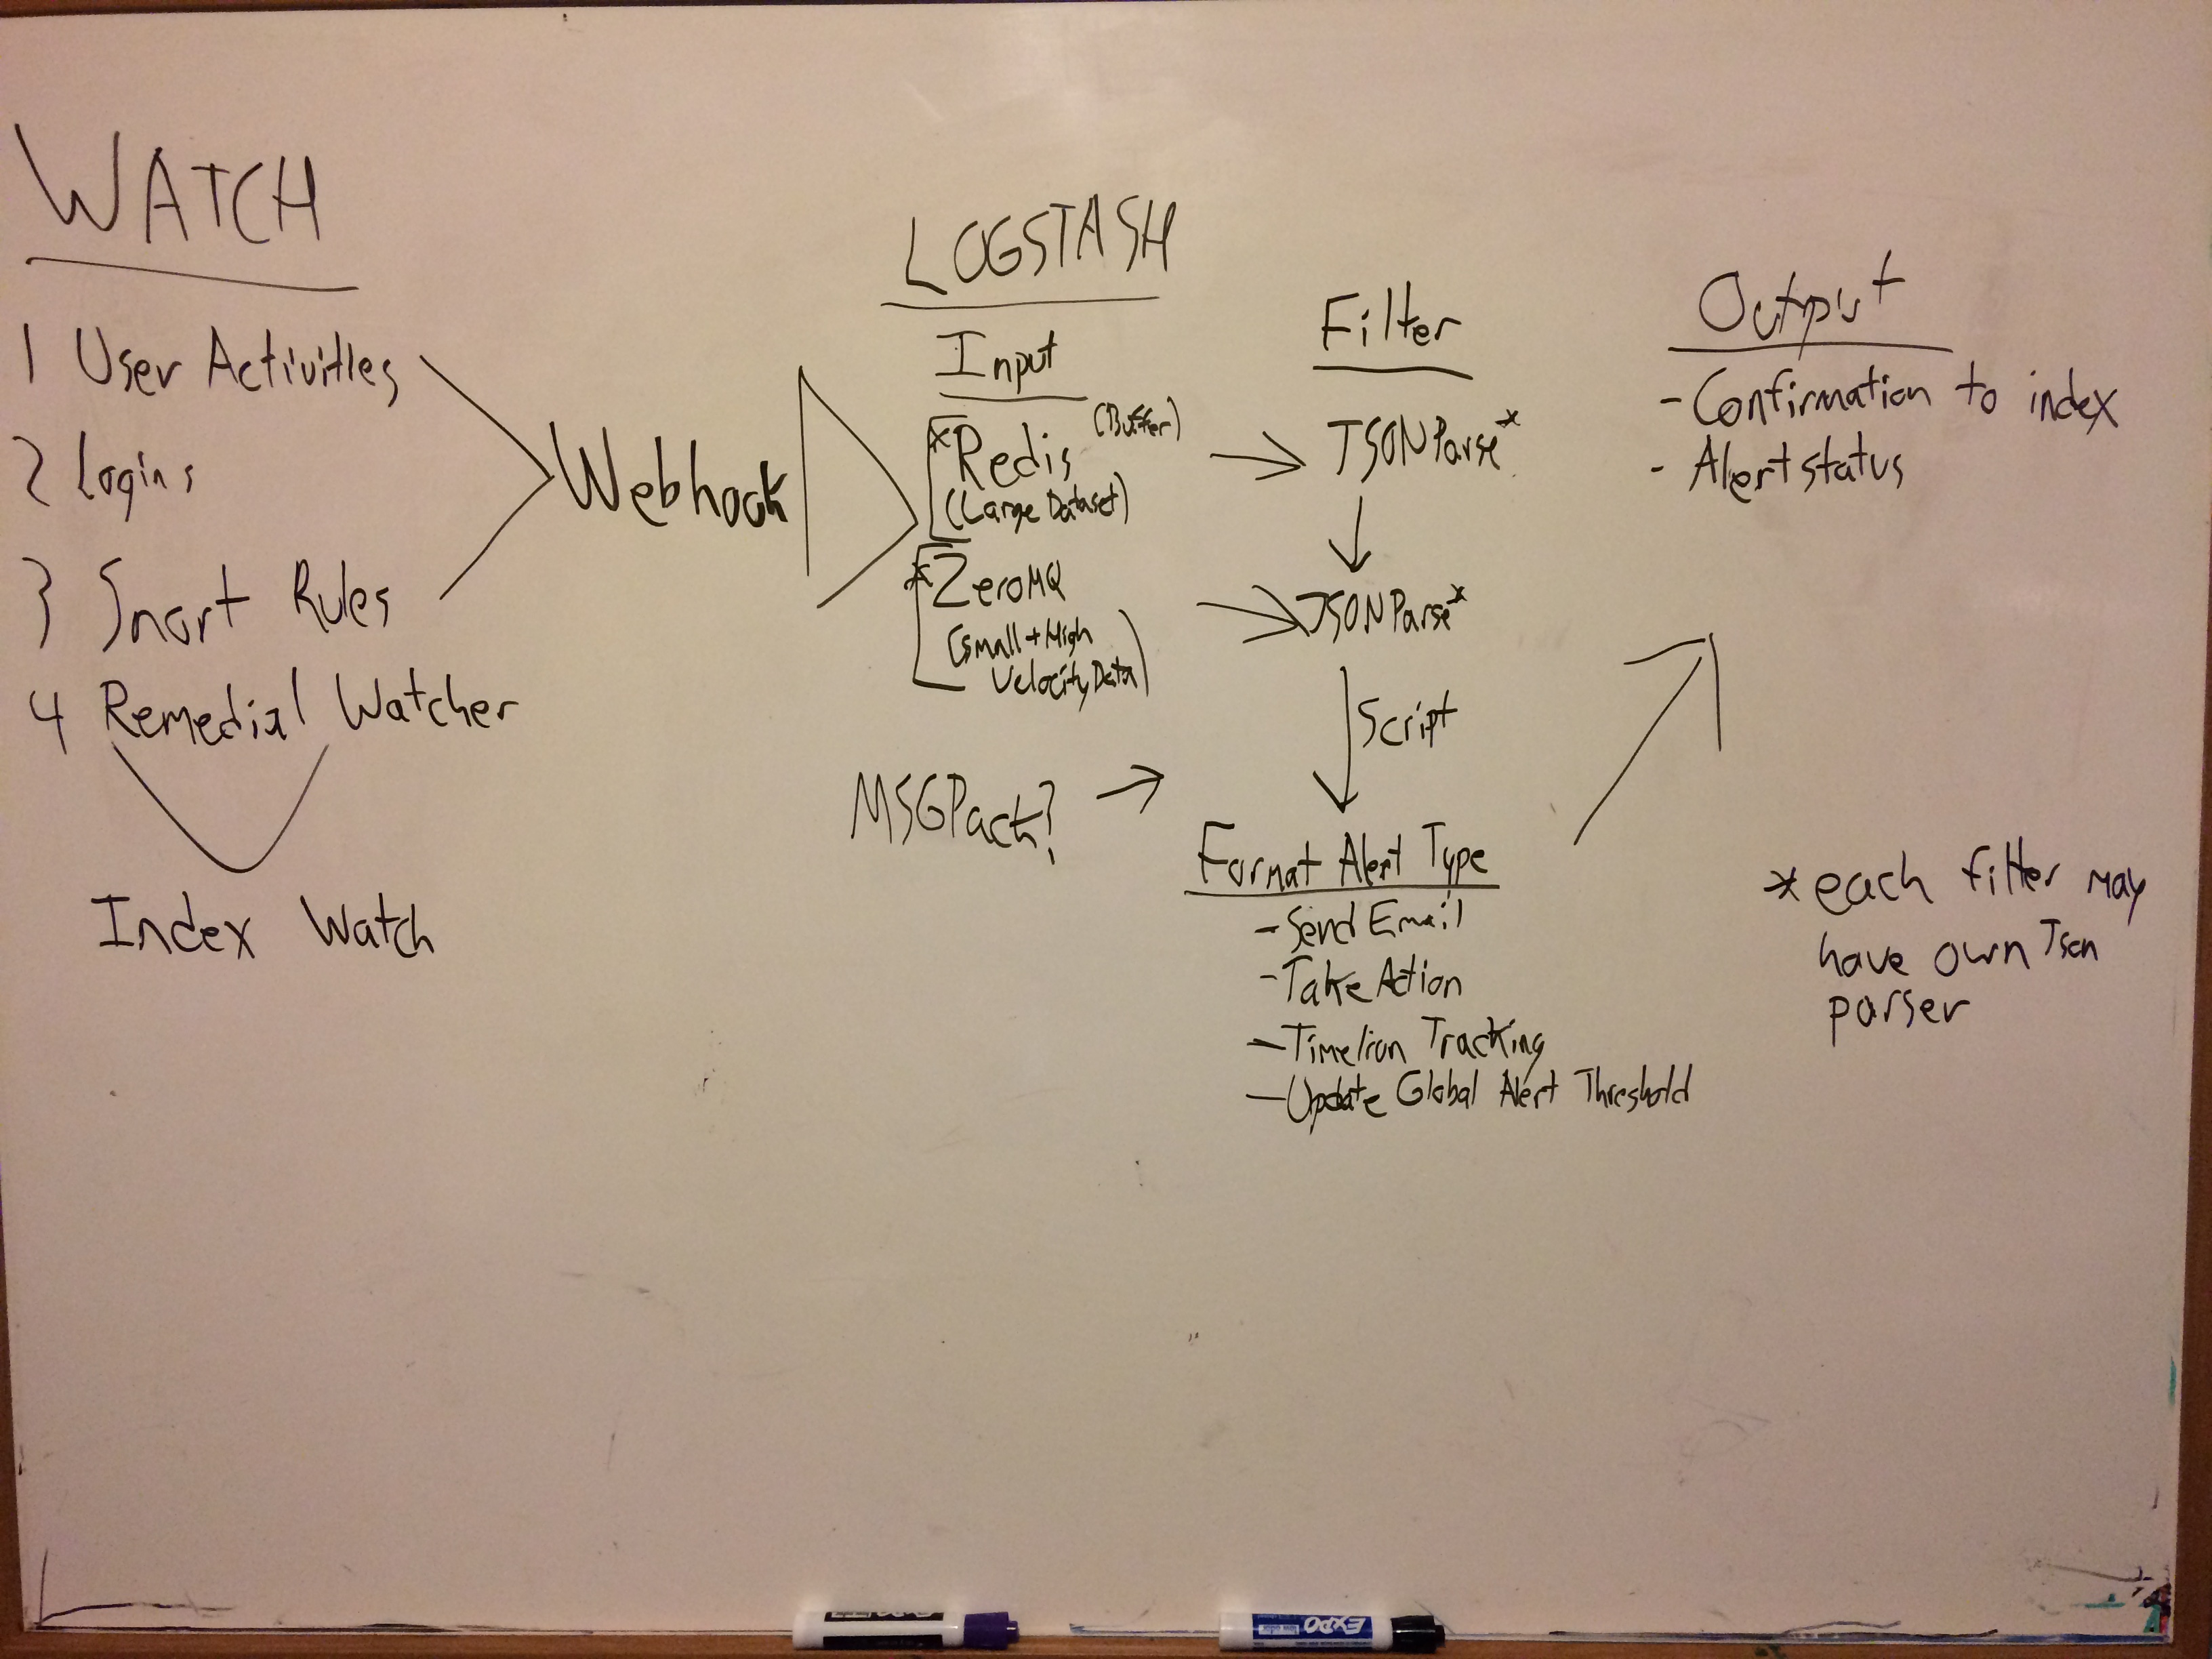 WATCH
1 User Activities
2 Logins
3 Snort Rules
4 Remedial Watcher
Index Watch
Webhook
LOGSTASH
Input
*Redis (Buffer)
(Large Dataset)
*ZeroMQ
(small + High
Velocity Data)
MSGPack?
Filter
JSONParse*
JSONParse*
Script
Format Alert Type
- Send Email
- Take Action
- Timelion Tracking
- Update Global Alert Threshold
Output
- Confirmation to index
- Alert status
* each filter may
have own Json
parser
EXPO